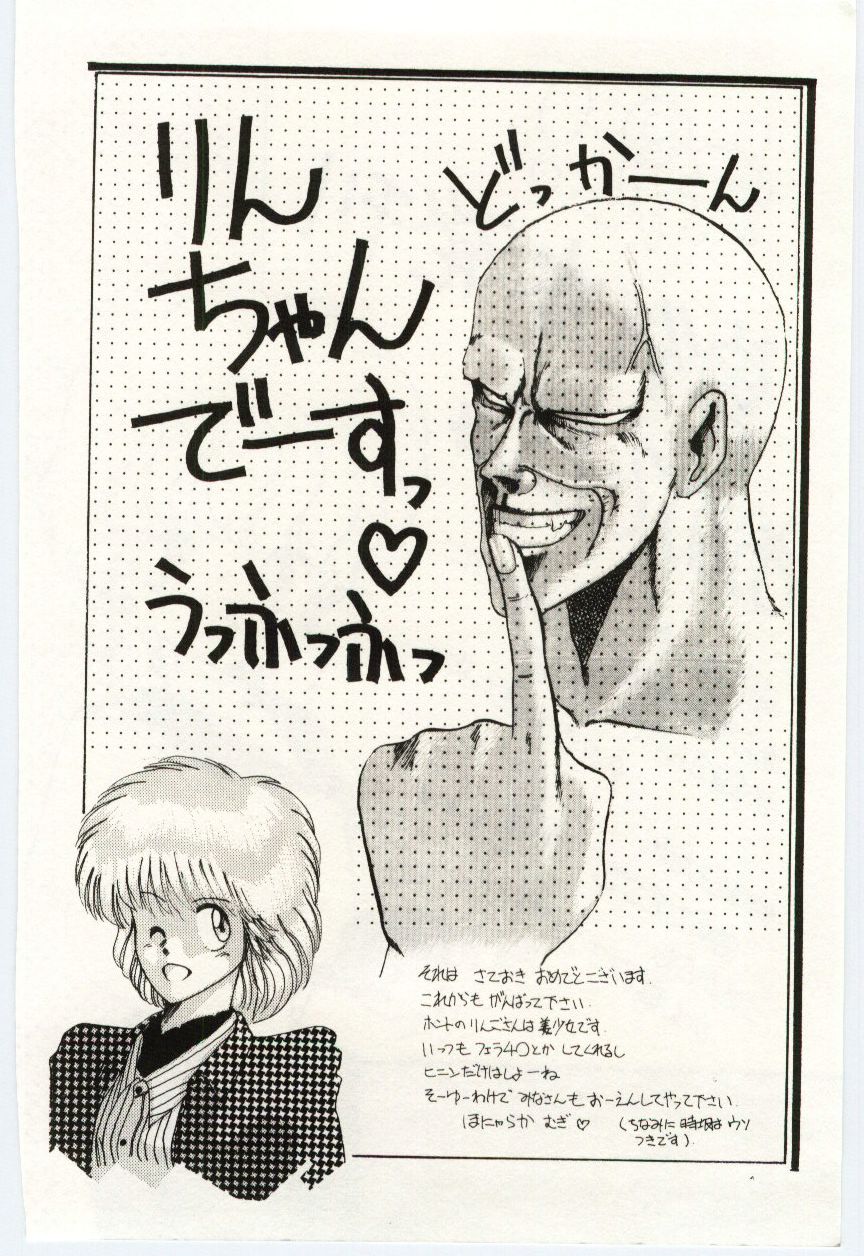 どっかーん
りん
ちゃん
でーすっ
♡
うっふっふっ
それは さておき おめでとございます.
これからも がんばって下さい.
ホントのりんごさんは美少女です.
いつも フェラ40とか してくれるし
ヒニンだけはしよーね
そーゆーわけで みなさんも おーえんしてやって下さい.
ほにゃらか むぎ♡
(ちなみに 時坂は ウソ
つきです).